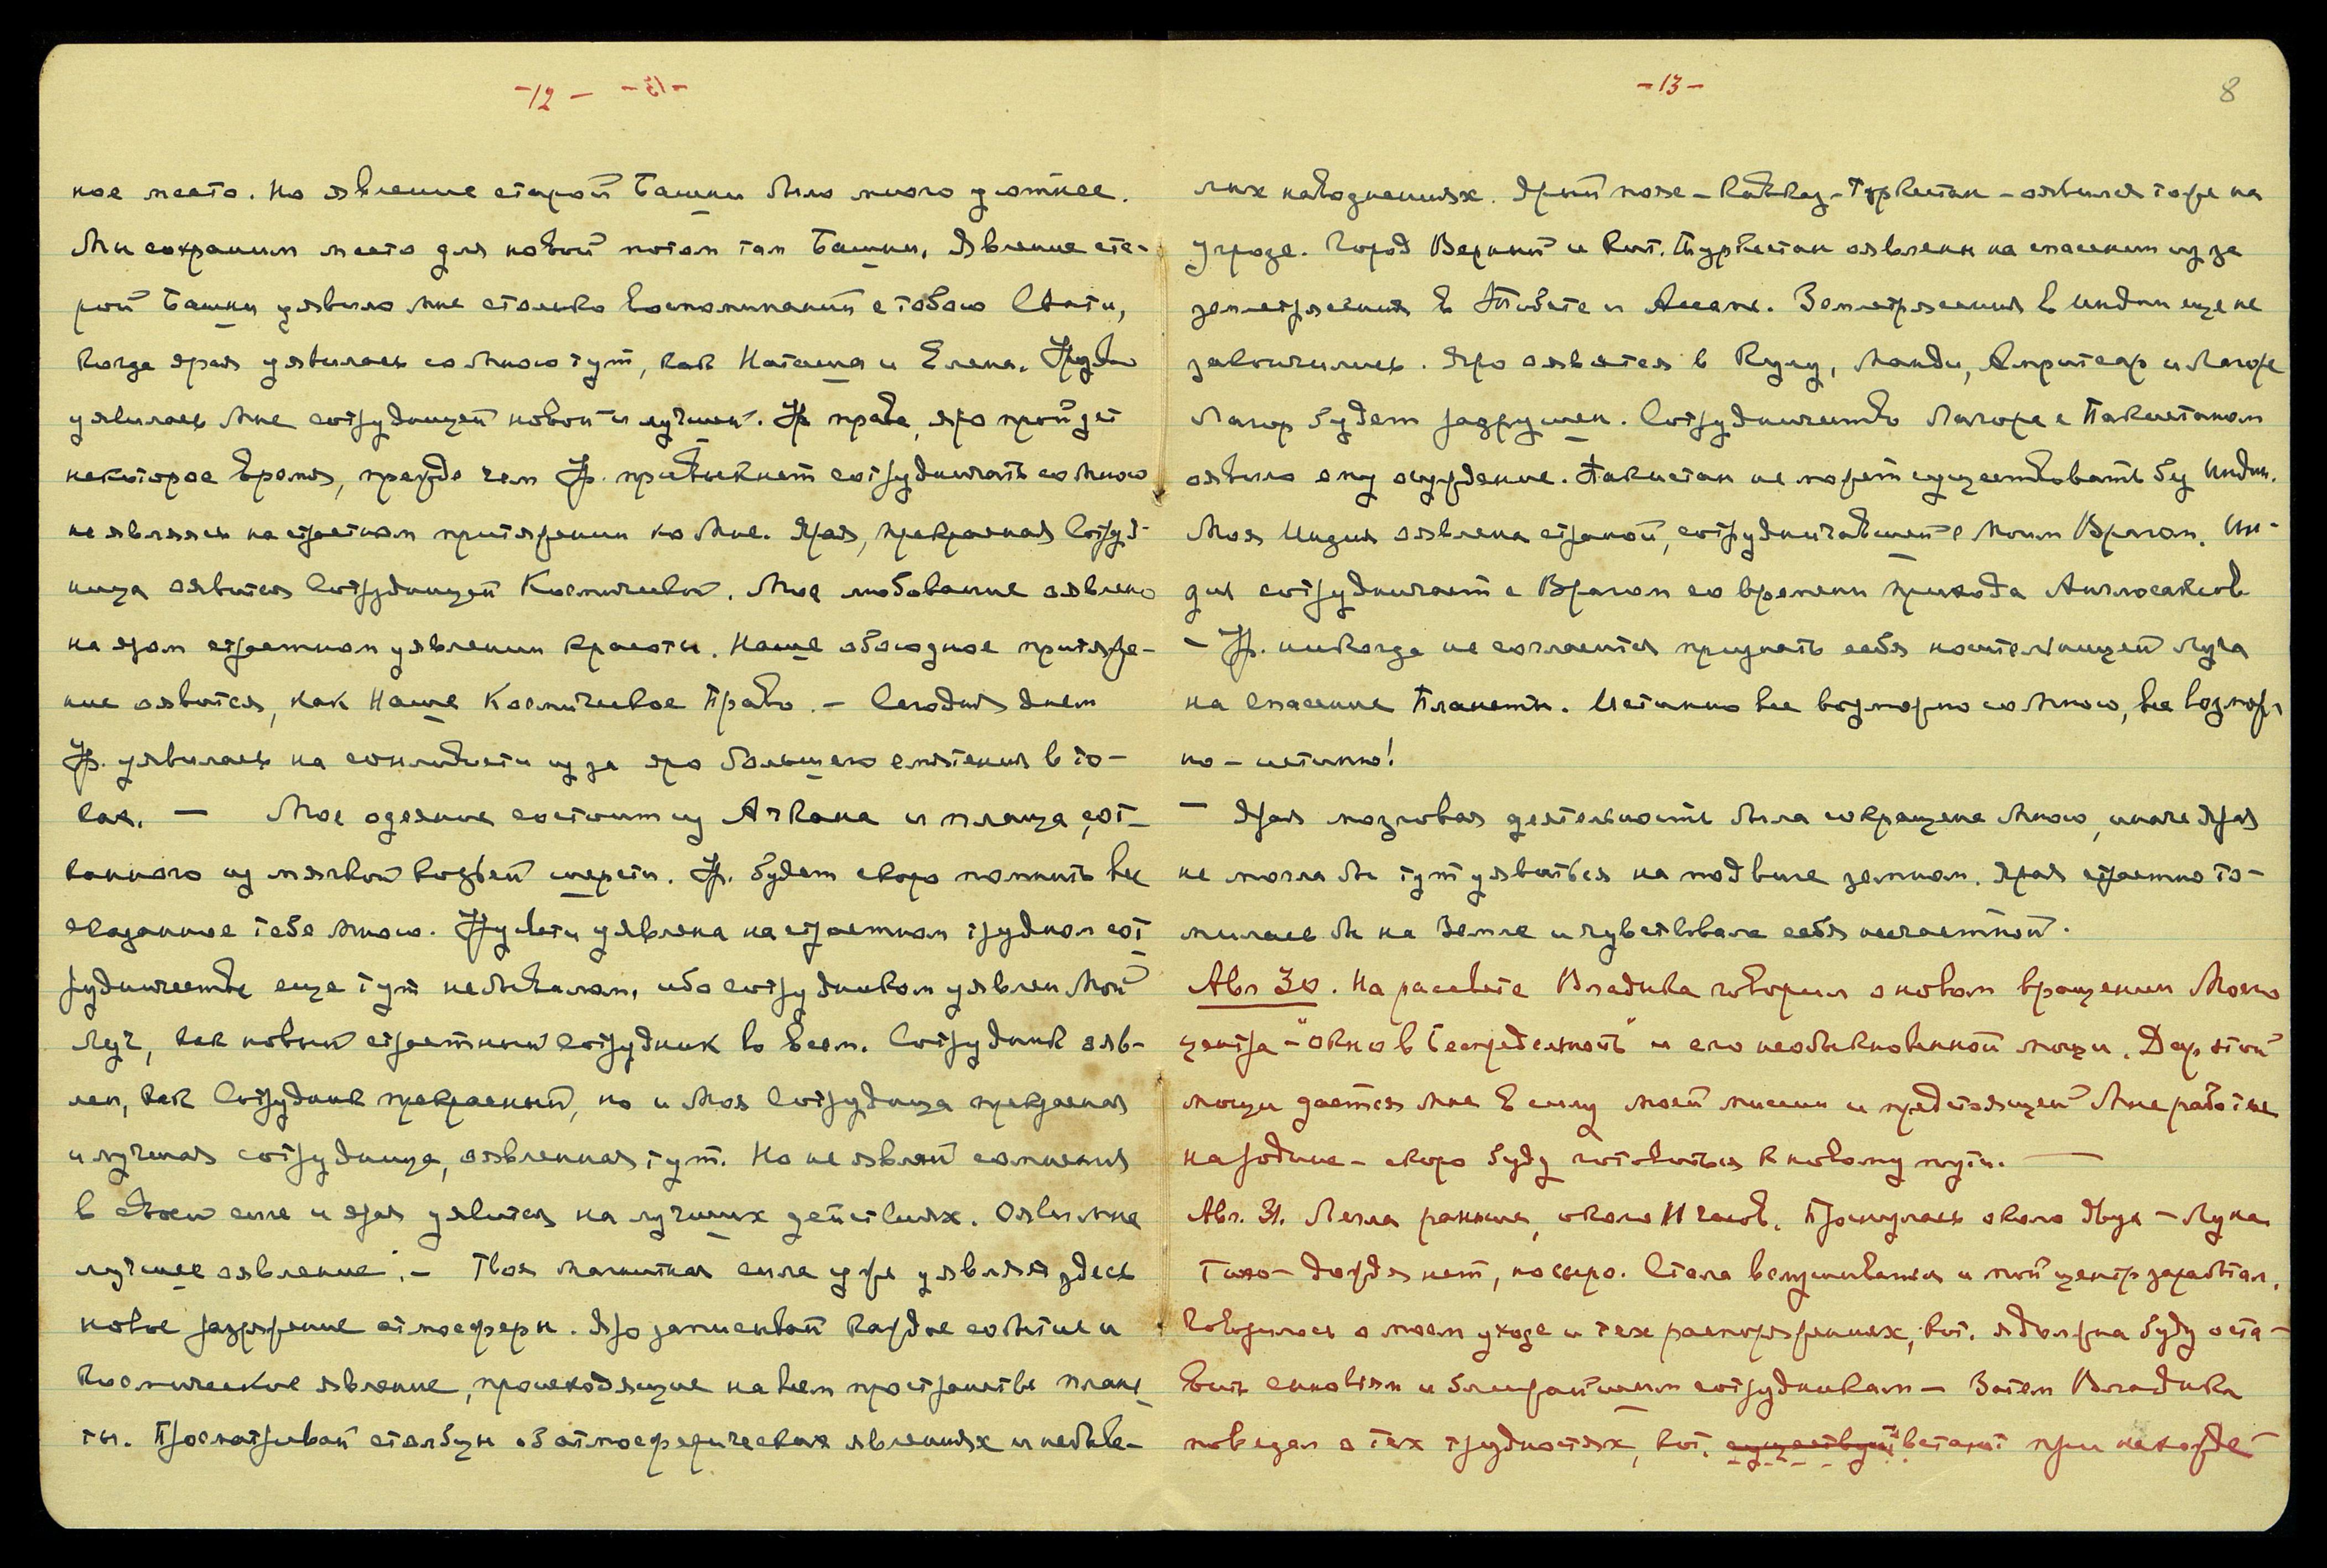 -12-
ное место. Но явление старой Башни было много уютнее.
Мы сохраним место для новой потом там Башни. Явление ста-
рой Башни уявило мне столько воспоминаний с тобою Свати,
когда ярая уявилась со Мною тут, как Наташа и Елена.
уявилась Мне сотрудницей новой и лучшей. Ур. права, яро пройдет
некоторое время, прежде чем Ур. привыкнет сотрудничать со Мною
не являясь на страстном притяжении ко Мне. Ярая, прекрасная Сотруд-
ница оявится Сотрудницей Космической. Мое любование оявлено
на яром страстном уявлении красоты. Наше обоюдное притяже-
ние оявится, как Наше Космическое Право. – Сегодня днем
Ур. уявилась на сонливости из за яро большего смятения в то-
ках. – Мое одеяние состоит из Ачкана и плаща, сот-
канного из мягкой козьей шерсти. Ур. будет скоро помнить все
сказанное тебе Мною. уявлена на страстном трудном сот-
рудничестве еще тут небывалом, ибо сотрудником уявлен Мой
Луч, как новый страстный сотрудник во всем. Сотрудникояв-
лен, как Сотрудник прекрасный, но и Моя Сотрудница прекрасная
и лучшая сотрудница, оявленная тут. Но не являй сомнения
в своей силе и ярая уявится на лучших действиях. Ояви мне
лучшее оявление. – Твоя магнитная сила уже уявляя здесь
новое разряжение атмосферы. Яро записывай каждое событие и
космическое явление, происходящие на всем пространстве плане-
ты. Просматривай столбцы об атмосферических явлениях и небыва-
-13-
8
лых наводнениях. Ярый пояс – Кавказ – Туркестан – оявился тоже на
угрозе. Город Верный и Кит. Туркестан оявлены на спасении из за
землетрясения в Тибете и Ассаме. Землетрясения в Индии еще не
закончились. Яро оявятся в Кулу, Манди, Амритсар и Лагоре
Лагор будет разрушен. Сотрудничество Лагора с Пакистаном
оявило ему осуждение. Пакистан не может существовать без Индии.
Моя Индия оявлена страной, сотрудничавшей с Моим Врагом. Ин-
дия сотрудничает с Врагом со времени прихода Англосаксов
– Ур. никогда не согласится признать себя носительницей Луча
на спасение Планеты. Истинно все возможно со Мною, все возмож-
но – истинно!
– Ярая мозговая деятельность была сокращена Мною, иначе Ярая
не могла бы тут уявиться на подвиге земном. Ярая страстно то-
милась бы на Земле и чувствовала себя несчастной.
Авг 30. На рассвете Владыка говорил о новом вращении Моего
центра – "окно в Беспредельность" и его необыкновенной мощи. Дар этой
мощи дается мне в силу моей миссии и предстоящей Мне работы
на родине – скоро буду готовиться к новому пути. –
Авг. 31. Легла раньше, около 11 часов. Проснулась около двух – Луна.
Тихо – дождя нет, но сыро. Стала вслушиваться и мой центр заработал.
Говорилось о моем уходе и тех распоряжениях, кот. я должна буду оста-
вить сыновьям и ближайшим сотрудникам – Затем Владыка
поведал о тех трудностях, кот. существуют встанут при